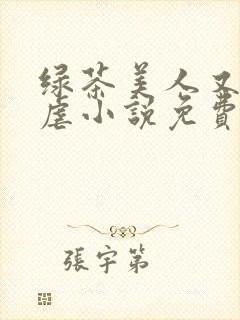 绿茶美人又
虐小說免費
張宇第